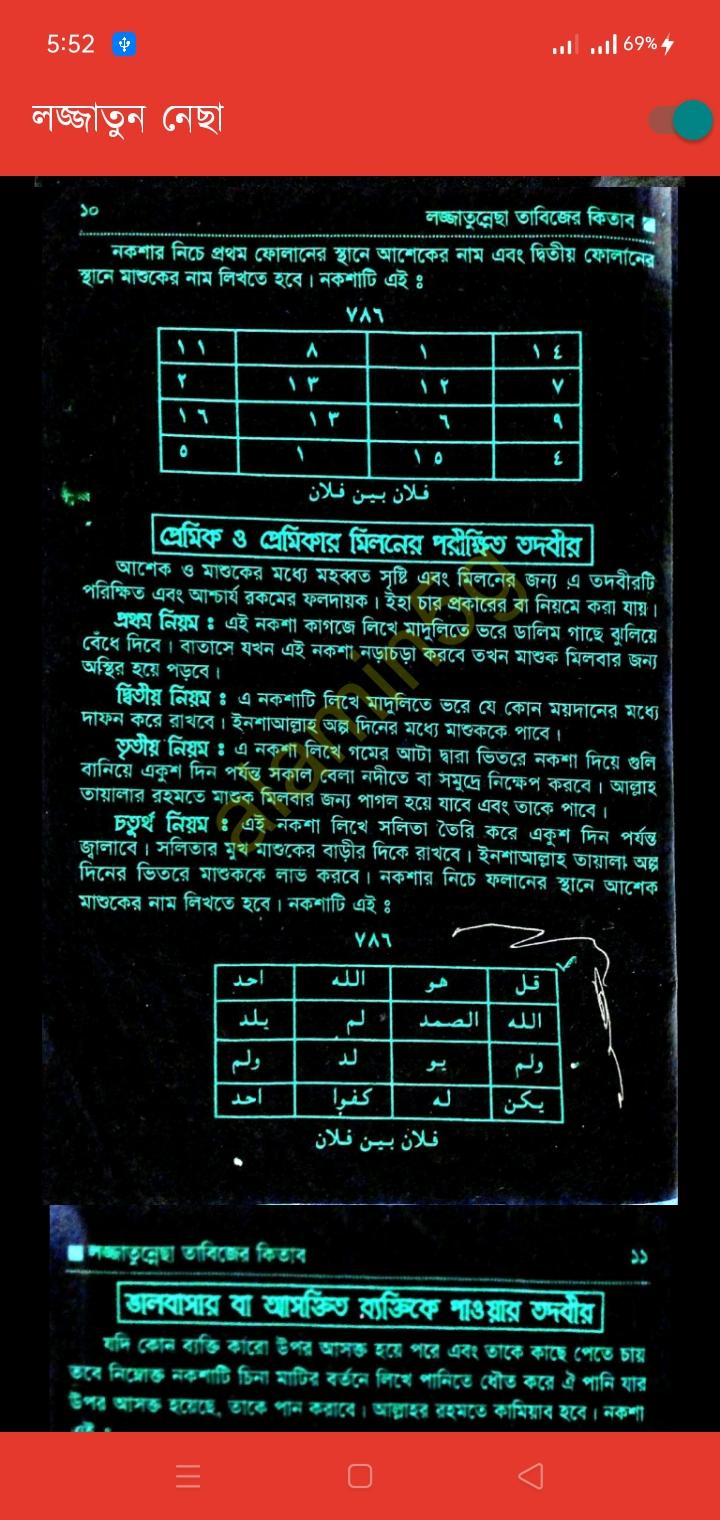 5:52
69%
লজ্জাতুন নেছা
১০ লজ্জাতুন্নেছা তাবিজের কিতাব
নকশার নিচে প্রথম ফোলানের স্থানে আশেকের নাম এবং দ্বিতীয় ফোলানের
স্থানে মাশুকের নাম লিখতে হবে। নকশাটি এই ঃ
٧٨٦
١١ ٨ ١ ١٤
٢ ١٣ ١٢ ٧
١٦ ١٣ ٦ ٩
٥ ١ ١٥ ٤
فلان بين فلان
প্রেমিক ও প্রেমিকার মিলনের পরীক্ষিত তদবীর
আশেক ও মাশুকের মধ্যে মহব্বত সৃষ্টি এবং মিলনের জন্য এ তদবীরটি
পরিক্ষিত এবং আশ্চার্য রকমের ফলদায়ক। ইহা চার প্রকারের বা নিয়মে করা যায়।
প্রথম নিয়ম ঃ এই নকশা কাগজে লিখে মাদুলিতে ভরে ডালিম গাছে ঝুলিয়ে
বেঁধে দিবে। বাতাসে যখন এই নকশা নড়াচড়া করবে তখন মাশুক মিলবার জন্য
অস্থির হয়ে পড়বে।
দ্বিতীয় নিয়ম ঃ এ নকশাটি লিখে মাদুলিতে ভরে যে কোন ময়দানের মধ্যে
দাফন করে রাখবে। ইনশাআল্লাহ অল্প দিনের মধ্যে মাশুককে পাবে।
তৃতীয় নিয়ম ঃ এ নকশা লিখে গমের আটা দ্বারা ভিতরে নকশা দিয়ে গুলি
বানিয়ে একুশ দিন পর্যন্ত সকাল বেলা নদীতে বা সমুদ্রে নিক্ষেপ করবে। আল্লাহ
তায়ালার রহমতে মাশুক মিলবার জন্য পাগল হয়ে যাবে এবং তাকে পাবে।
চতুর্থ নিয়ম ঃ এই নকশা লিখে সলিতা তৈরি করে একুশ দিন পর্যন্ত
জ্বালাবে। সলিতার মুখ মাশুকের বাড়ীর দিকে রাখবে। ইনশাআল্লাহ তায়ালা অল্প
দিনের ভিতরে মাশুককে লাভ করবে। নকশার নিচে ফলানের স্থানে আশেক
মাশুকের নাম লিখতে হবে। নকশাটি এই ঃ
alamin5g
٧٨٦
قل هو الله احد
الله الصمد لم يلد
ولم يو لد ولم
يكن له كفوا احد
فلان بين فلان
লজ্জাতুন্নেছা তাবিজের কিতাব ১১
ভালবাসার বা আসক্তিত ব্যক্তিকে পাওয়ার তদবীর
যদি কোন ব্যক্তি কারো উপর আসক্ত হয়ে পরে এবং তাকে কাছে পেতে চায়
তবে নিম্নোক্ত নকশাটি চিনা মাটির বর্তনে লিখে পানিতে ধৌত করে ঐ পানি যার
উপর আসক্ত হয়েছে, তাকে পান করাবে। আল্লাহর রহমতে কামিয়াব হবে। নকশা